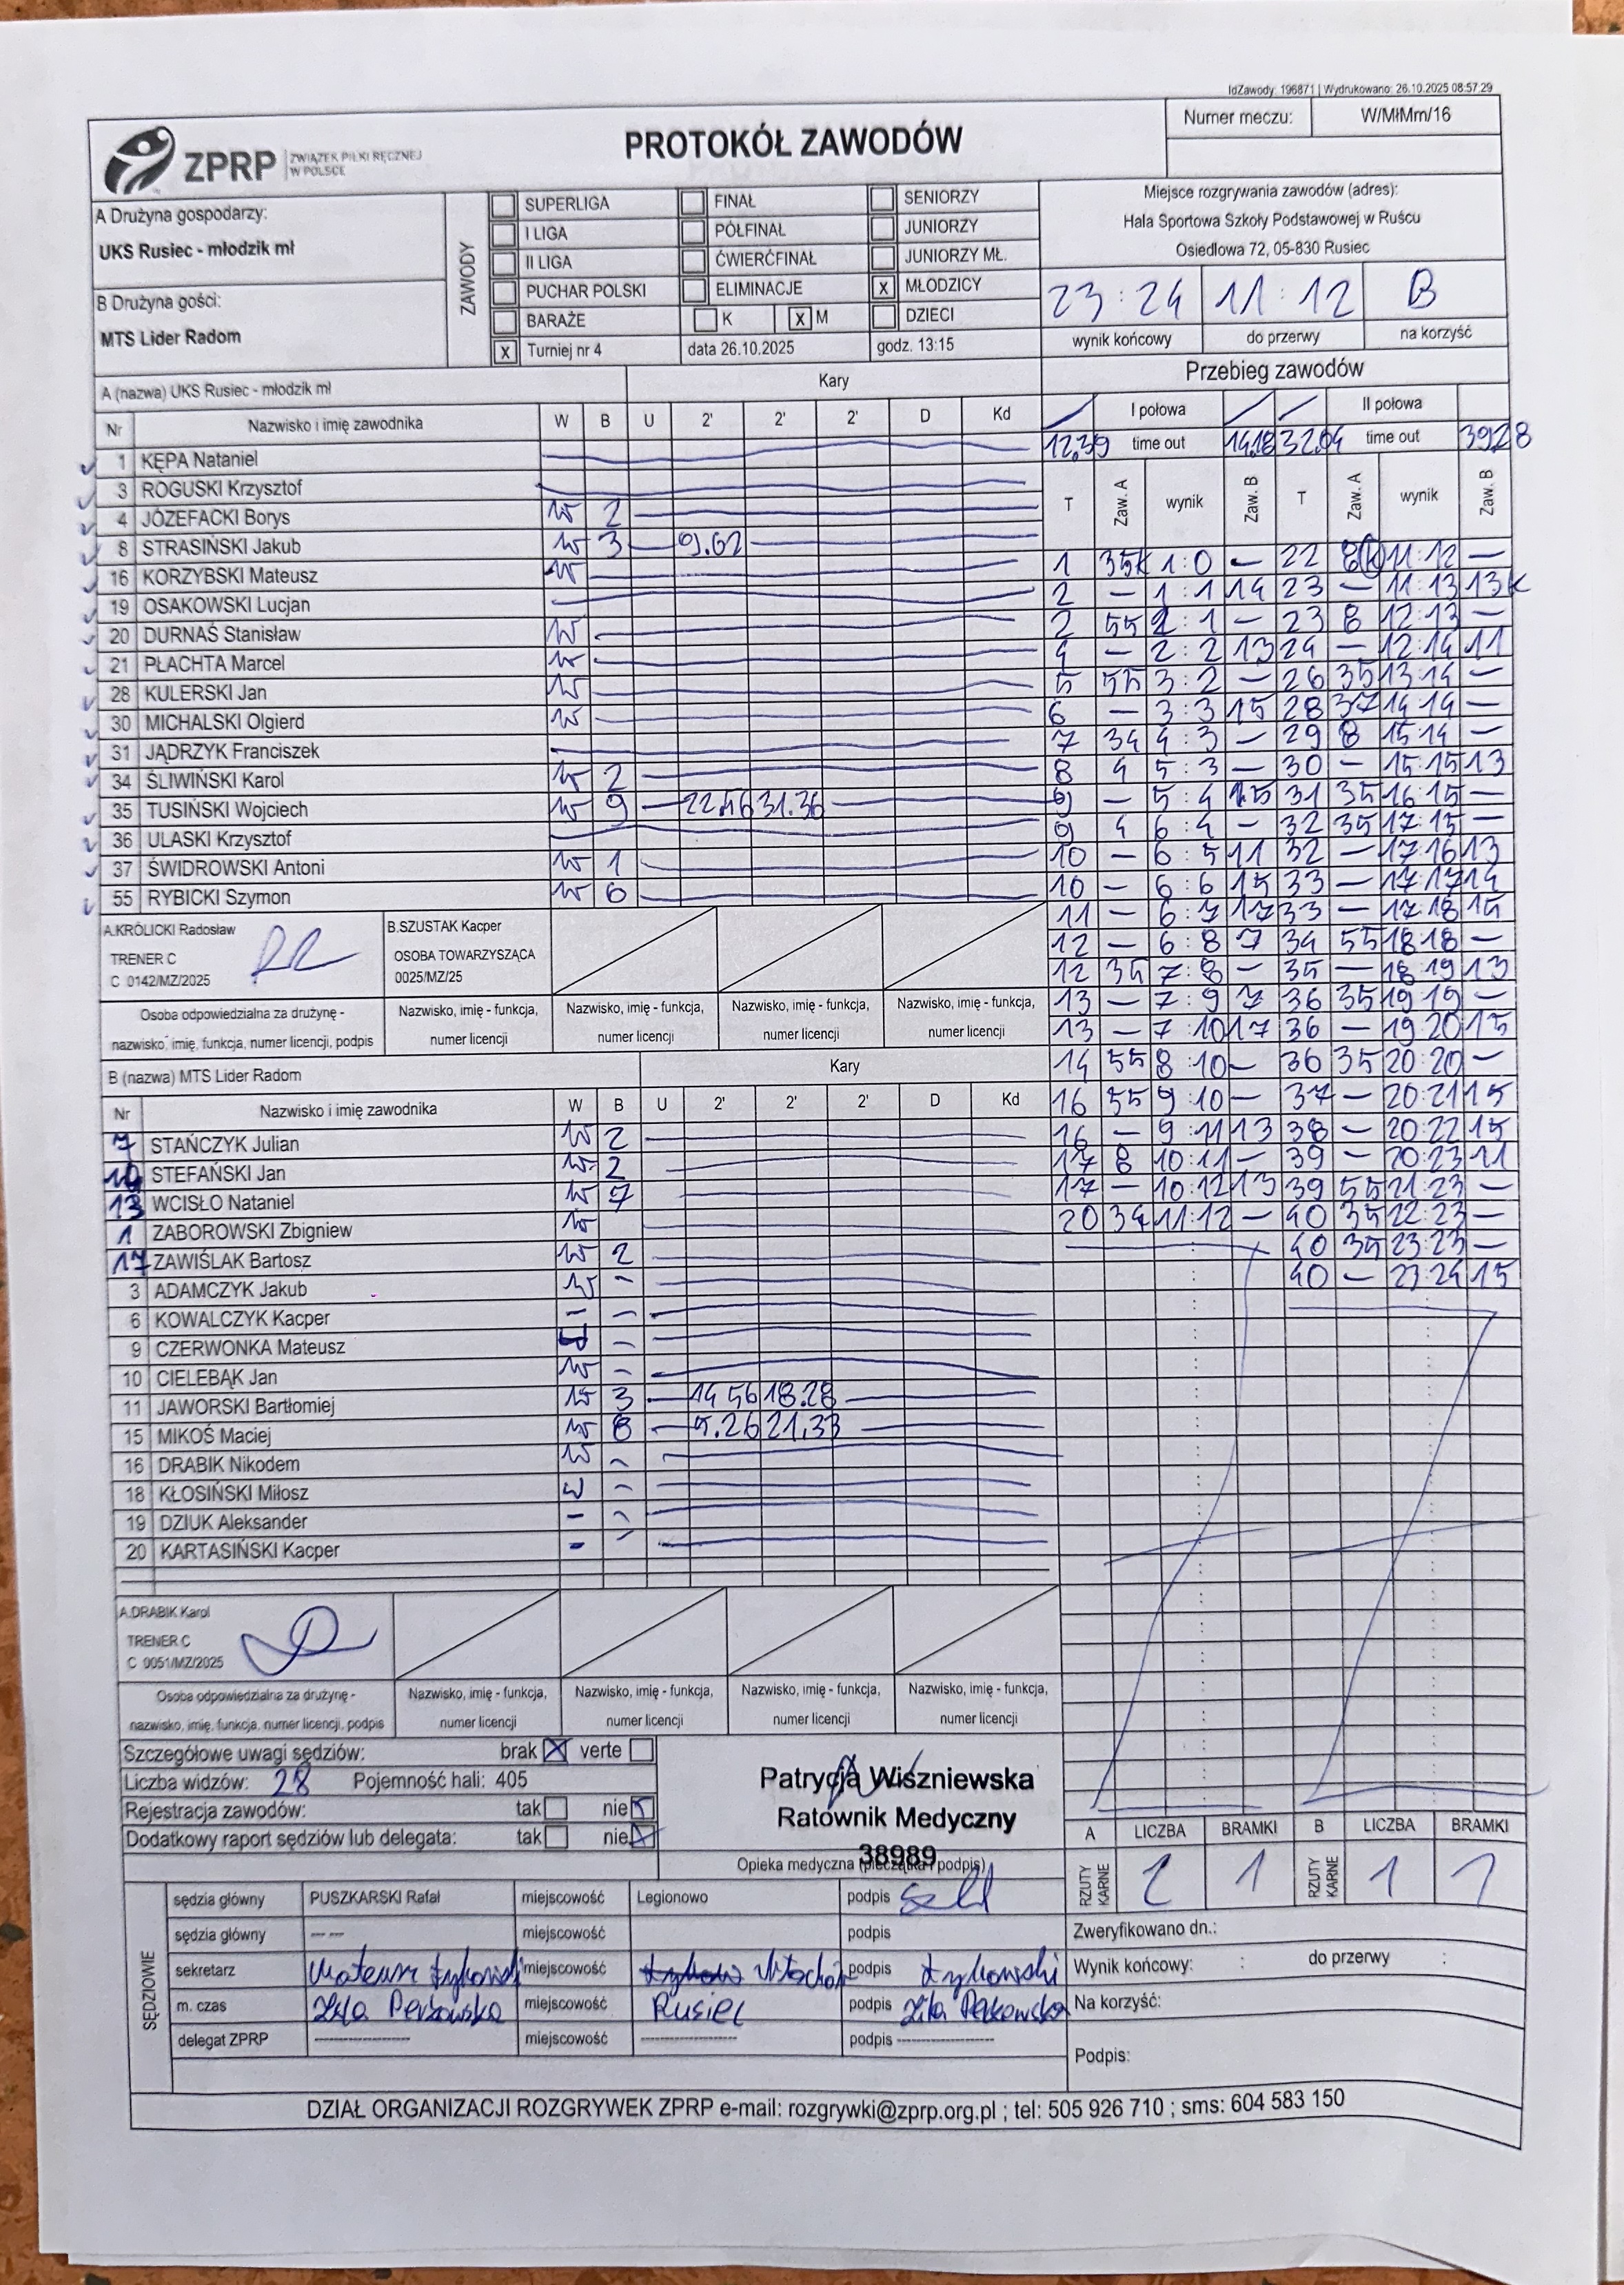 IdZawody: 196871 | Wydrukowano: 26.10.2025 08:57:29
ZPRP ZWIĄZEK PIŁKI RĘCZNEJ W POLSCE
PROTOKÓŁ ZAWODÓW
Numer meczu: W/MłMm/16
A Drużyna gospodarzy:
UKS Rusiec - młodzik mł
B Drużyna gości:
MTS Lider Radom
ZAWODY
SUPERLIGA FINAŁ SENIORZY
I LIGA PÓŁFINAŁ JUNIORZY
II LIGA ĆWIERĆFINAŁ JUNIORZY MŁ.
PUCHAR POLSKI ELIMINACJE X MŁODZICY
BARAŻE K X M DZIECI
X Turniej nr 4 data 26.10.2025 godz. 13:15
Miejsce rozgrywania zawodów (adres):
Hala Sportowa Szkoły Podstawowej w Ruścu
Osiedlowa 72, 05-830 Rusiec
23:24 11:12 B
wynik końcowy do przerwy na korzyść
A (nazwa) UKS Rusiec - młodzik mł Kary
Nr Nazwisko i imię zawodnika W B U 2' 2' 2' D Kd
1 KĘPA Nataniel
3 ROGUSKI Krzysztof
4 JÓZEFACKI Borys W 2
8 STRASIŃSKI Jakub W 3
16 KORZYBSKI Mateusz W
19 OSAKOWSKI Lucjan
20 DURNAŚ Stanisław W
21 PŁACHTA Marcel W
28 KULERSKI Jan W
30 MICHALSKI Olgierd W
31 JĄDRZYK Franciszek
34 ŚLIWIŃSKI Karol W 2
35 TUSIŃSKI Wojciech W 9 22.46 31.36
36 ULASKI Krzysztof
37 ŚWIDROWSKI Antoni W 1
55 RYBICKI Szymon W 6
A.KRÓLICKI Radosław
TRENER C
C 0142/MZ/2025
B.SZUSTAK Kacper
OSOBA TOWARZYSZĄCA
0025/MZ/25
Osoba odpowiedzialna za drużynę - nazwisko, imię, funkcja, numer licencji, podpis
Nazwisko, imię - funkcja, numer licencji
Nazwisko, imię - funkcja, numer licencji
Nazwisko, imię - funkcja, numer licencji
Nazwisko, imię - funkcja, numer licencji
B (nazwa) MTS Lider Radom Kary
Nr Nazwisko i imię zawodnika W B U 2' 2' 2' D Kd
7 STAŃCZYK Julian W 2
14 STEFAŃSKI Jan W 2
13 WCISŁO Nataniel W 7
1 ZABOROWSKI Zbigniew W
17 ZAWIŚLAK Bartosz W 2
3 ADAMCZYK Jakub W -
6 KOWALCZYK Kacper - -
9 CZERWONKA Mateusz -
10 CIELEBĄK Jan W -
11 JAWORSKI Bartłomiej W 3 14 56 18.28
15 MIKOŚ Maciej W 8 5.26 21.33
16 DRABIK Nikodem W -
18 KŁOSIŃSKI Miłosz W -
19 DZIUK Aleksander - -
20 KARTASIŃSKI Kacper - -
A.DRABIK Karol
TRENER C
C 0051/MZ/2025
Osoba odpowiedzialna za drużynę - nazwisko, imię, funkcja, numer licencji, podpis
Nazwisko, imię - funkcja, numer licencji
Nazwisko, imię - funkcja, numer licencji
Nazwisko, imię - funkcja, numer licencji
Nazwisko, imię - funkcja, numer licencji
Przebieg zawodów
I połowa II połowa
12.39 time out 14.18 32.04 time out 39.28
T Zaw. A wynik Zaw. B T Zaw. A wynik Zaw. B
1 35k 1:0 — 22 8(k) 11:12 —
2 — 1:1 14 23 — 11:13 13k
2 55 2:1 — 23 8 12:13 —
4 — 2:2 13 24 — 12:14 11
5 55 3:2 — 26 35 13:14 —
6 — 3:3 15 28 37 14:14 —
7 34 4:3 — 29 8 15:14 —
8 4 5:3 — 30 — 15:15 13
9 — 5:4 15 31 35 16:15 —
9 4 6:4 — 32 35 17:15 —
10 — 6:5 11 32 — 17:16 13
10 — 6:6 15 33 — 17:17 14
11 — 6:7 17 33 — 17:18 15
12 — 6:8 7 34 55 18:18 —
12 35 7:8 — 35 — 18:19 13
13 — 7:9 7 36 35 19:19 —
13 — 7:10 17 36 — 19:20 15
14 55 8:10 — 36 35 20:20 —
16 55 9:10 — 37 — 20:21 15
16 — 9:11 13 38 — 20:22 15
17 8 10:11 — 39 — 20:23 11
17 — 10:12 13 39 55 21:23 —
20 34 11:12 — 40 35 22:23 —
40 35 23:23 —
40 — 23:24 15
Szczegółowe uwagi sędziów: brak X verte
Liczba widzów: 28 Pojemność hali: 405
Rejestracja zawodów: tak nie X
Dodatkowy raport sędziów lub delegata: tak nie X
Patrycja Wiszniewska
Ratownik Medyczny
38989
Opieka medyczna (pieczątka i podpis)
A LICZBA BRAMKI B LICZBA BRAMKI
RZUTY KARNE 2 1 RZUTY KARNE 1 1
SĘDZIOWIE
sędzia główny PUSZKARSKI Rafał miejscowość Legionowo podpis
sędzia główny --- --- miejscowość podpis
sekretarz Mateusz miejscowość podpis
m. czas miejscowość Rusiec podpis
delegat ZPRP miejscowość podpis
Zweryfikowano dn.:
Wynik końcowy: : do przerwy :
Na korzyść:
Podpis:
DZIAŁ ORGANIZACJI ROZGRYWEK ZPRP e-mail: rozgrywki@zprp.org.pl ; tel: 505 926 710 ; sms: 604 583 150